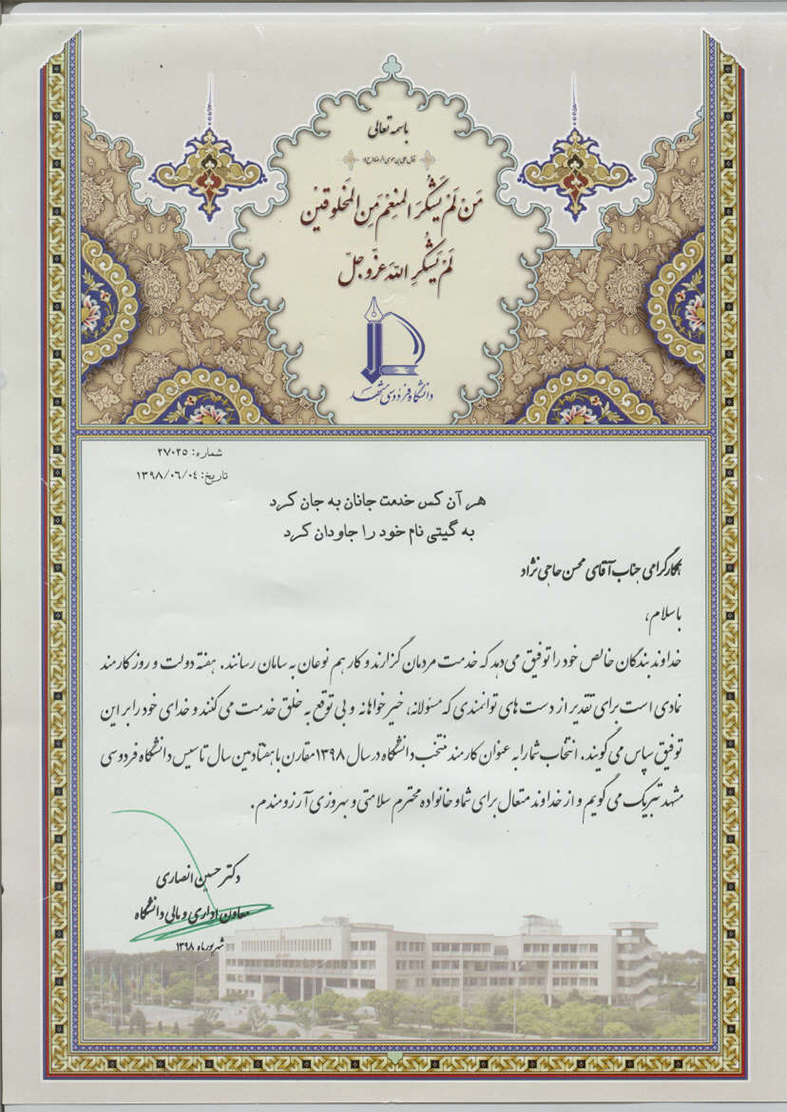 باسمه تعالی
قال علی بن موسی الرضا(ع):
مَنْ لَمْ یَشْکُرِ المُنعِمَ مِنَ المَخلوقینَ
لَمْ یَشْکُرِ اللهَ عَزَّوَجَلَّ
دانشگاه فردوسی مشهد
شماره: ۲۷۰۲۵
تاریخ: ۱۳۹۸/۰۶/۰۴
هر آن کس خدمت جانان به جان کرد
به گیتی نام خود را جاودان کرد
همکار گرامی جناب آقای محسن حاجی نژاد
با سلام،
خداوند بندگان خالص خود را توفیق می‌دهد که خدمت مردمان گزارند و کار هم نوعان به سامان رسانند. هفته دولت و روز کارمند
نمادی است برای تقدیر از دست های توانمندی که مسئولانه، خیرخواهانه و بی توقع به خلق خدمت می کنند و خدای خود را بر این
توفیق سپاس می گویند. انتخاب شما را به عنوان کارمند منتخب دانشگاه در سال ۱۳۹۸ مقارن با هفتادمین سال تاسیس دانشگاه فردوسی
مشهد تبریک می گویم و از خداوند متعال برای شما و خانواده محترم سلامتی و بهروزی آرزومندم.
دکتر حسین انصاری
معاون اداری و مالی دانشگاه
شهریورماه ۱۳۹۸